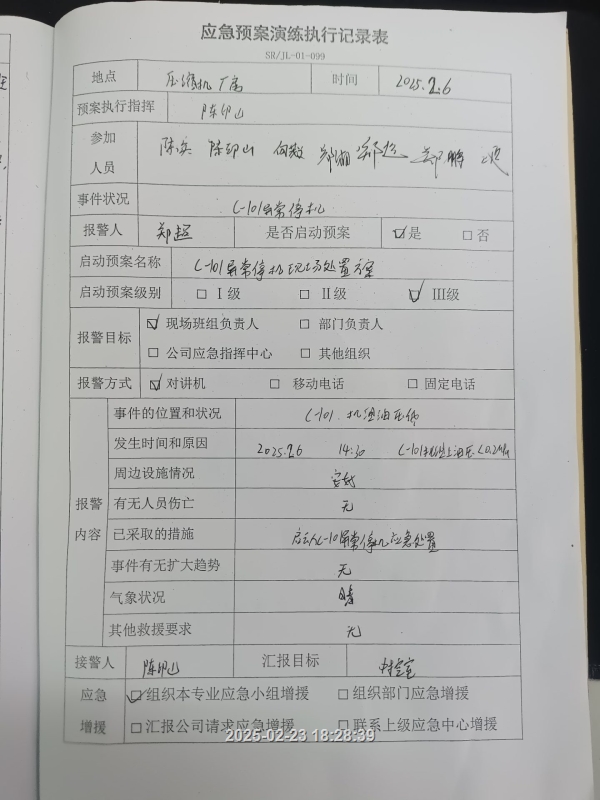 应急预案演练执行记录表
SR/JL-01-099
地点 压缩机厂房 时间 2025.2.6
预案执行指挥 陈印山
参加人员 陈兵 陈印山 郑超 郑鹏
事件状况 C-101异常停机
报警人 郑超 是否启动预案 ☑是 □否
启动预案名称 C-101异常停机现场处置方案
启动预案级别 □Ⅰ级 □Ⅱ级 ☑Ⅲ级
报警目标 ☑现场班组负责人 □部门负责人
□公司应急指挥中心 □其他组织
报警方式 ☑对讲机 □移动电话 □固定电话
报警内容
事件的位置和状况 C-101.机组油压低
发生时间和原因 2025.2.6 14:30 C-101 油压<0.2MPa
周边设施情况 完好
有无人员伤亡 无
已采取的措施 启动C-101异常停机应急处置
事件有无扩大趋势 无
气象状况 晴
其他救援要求 无
接警人 陈印山 汇报目标 中控室
应急增援 ☑组织本专业应急小组增援 □组织部门应急增援
□汇报公司请求应急增援 □联系上级应急中心增援
2025-02-23 18:28:39